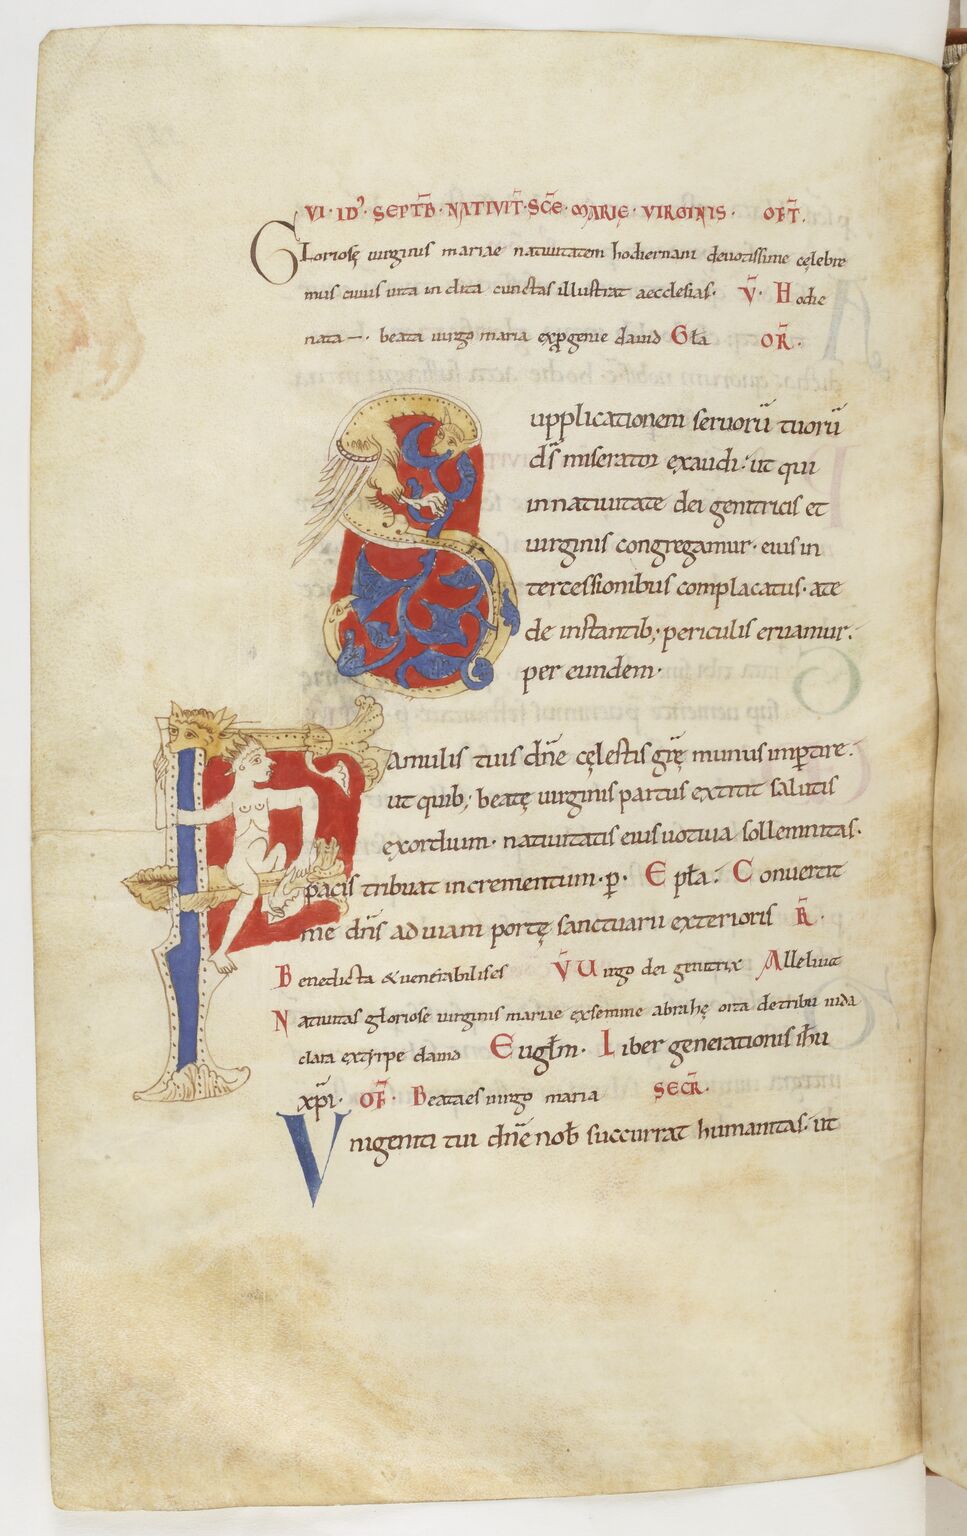 VI· ID’· SEPTB̄· NATIVIT̄· SC̄E· MARIE̜· VIRGINIS· OFT̄.
Gloriosę uirginis mariae natiuitatem hodiernam deuotissime cęlebre
mus cuius uita inclita cunctas illustrat aecclesias· V̄· Hodie
nata—· beata uirgo maria exꝓgenie dauid Gła OR̄·
Supplicationem seruorū tuorū
ds̄ miserator exaudi· ut qui
in natiuitate dei genitricis et
uirginis congregamur· eius in
tercessionibus complacatus· ate
de instantib; periculis eruamur.
per eundem·
Famulis tuis dn̄e cęlestis gr̄ę munus imꝑtire·
ut quib; beatę uirginis partus extitit salutis
exordium· natiuitatis eius uotiua sollemnitas·
pacis tribuat incrementum· p̄· Epła· Conuertit
me dn̄s ad uiam portę sanctuarii exterioris R̄·
Benedicta &uenerabilis es V̄ Uirgo dei genitrix Alleluia
Natiuitas gloriose uirginis mariae exsemine abrahę orta detribu iuda
clara exstirpe dauid Eugłm· Liber generationis ih̄u
xp̄i· OF̄· Beataes uirgo maria SECR̄·
Vnigeniti tui dn̄e nob̄ succurrat humanitas· ut